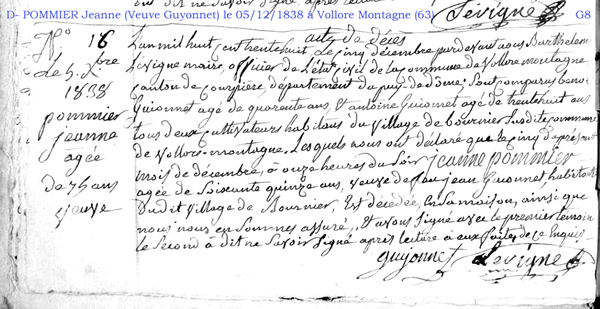 D- POMMIER Jeanne (Veuve Guyonnet) le 05/12/1838 à Vollore Montagne (63) G8
Sevigne
acte de décès
N° 16
Le 5 Xbre
1838
pommier
jeanne
agée
de 75 ans
veuve
L'an mil huit cent trente huit Le cinq décembre pardevant nous Barthelemi
Sevigne maire officier de L'état civil de la commune de Vollore montagne
canton de courpière département du puy-de-dome; Sont comparus benoi
Guionnet agé de quarante ans, & antoine guionnet agé de trente huit ans
tous deux cultivateurs habitans du Village de bournier Susdite commune
de Vollore-montagne. Lesquels nous ont déclaré que le cinq du présent
mois de décembre, à onze heures du Soir jeanne pommier
agée de Soixante quinze ans, veuve de feu jean Guionnet habitante
dudit village de Bournier, Est décédée En sa maison, ainsi que
nous nous en Sommes assuré, & avons Signé avec le premier témoin
le Second a dit ne Savoir Signé après lecture à eux faite de ce Enquis
guyonnet Sevigne